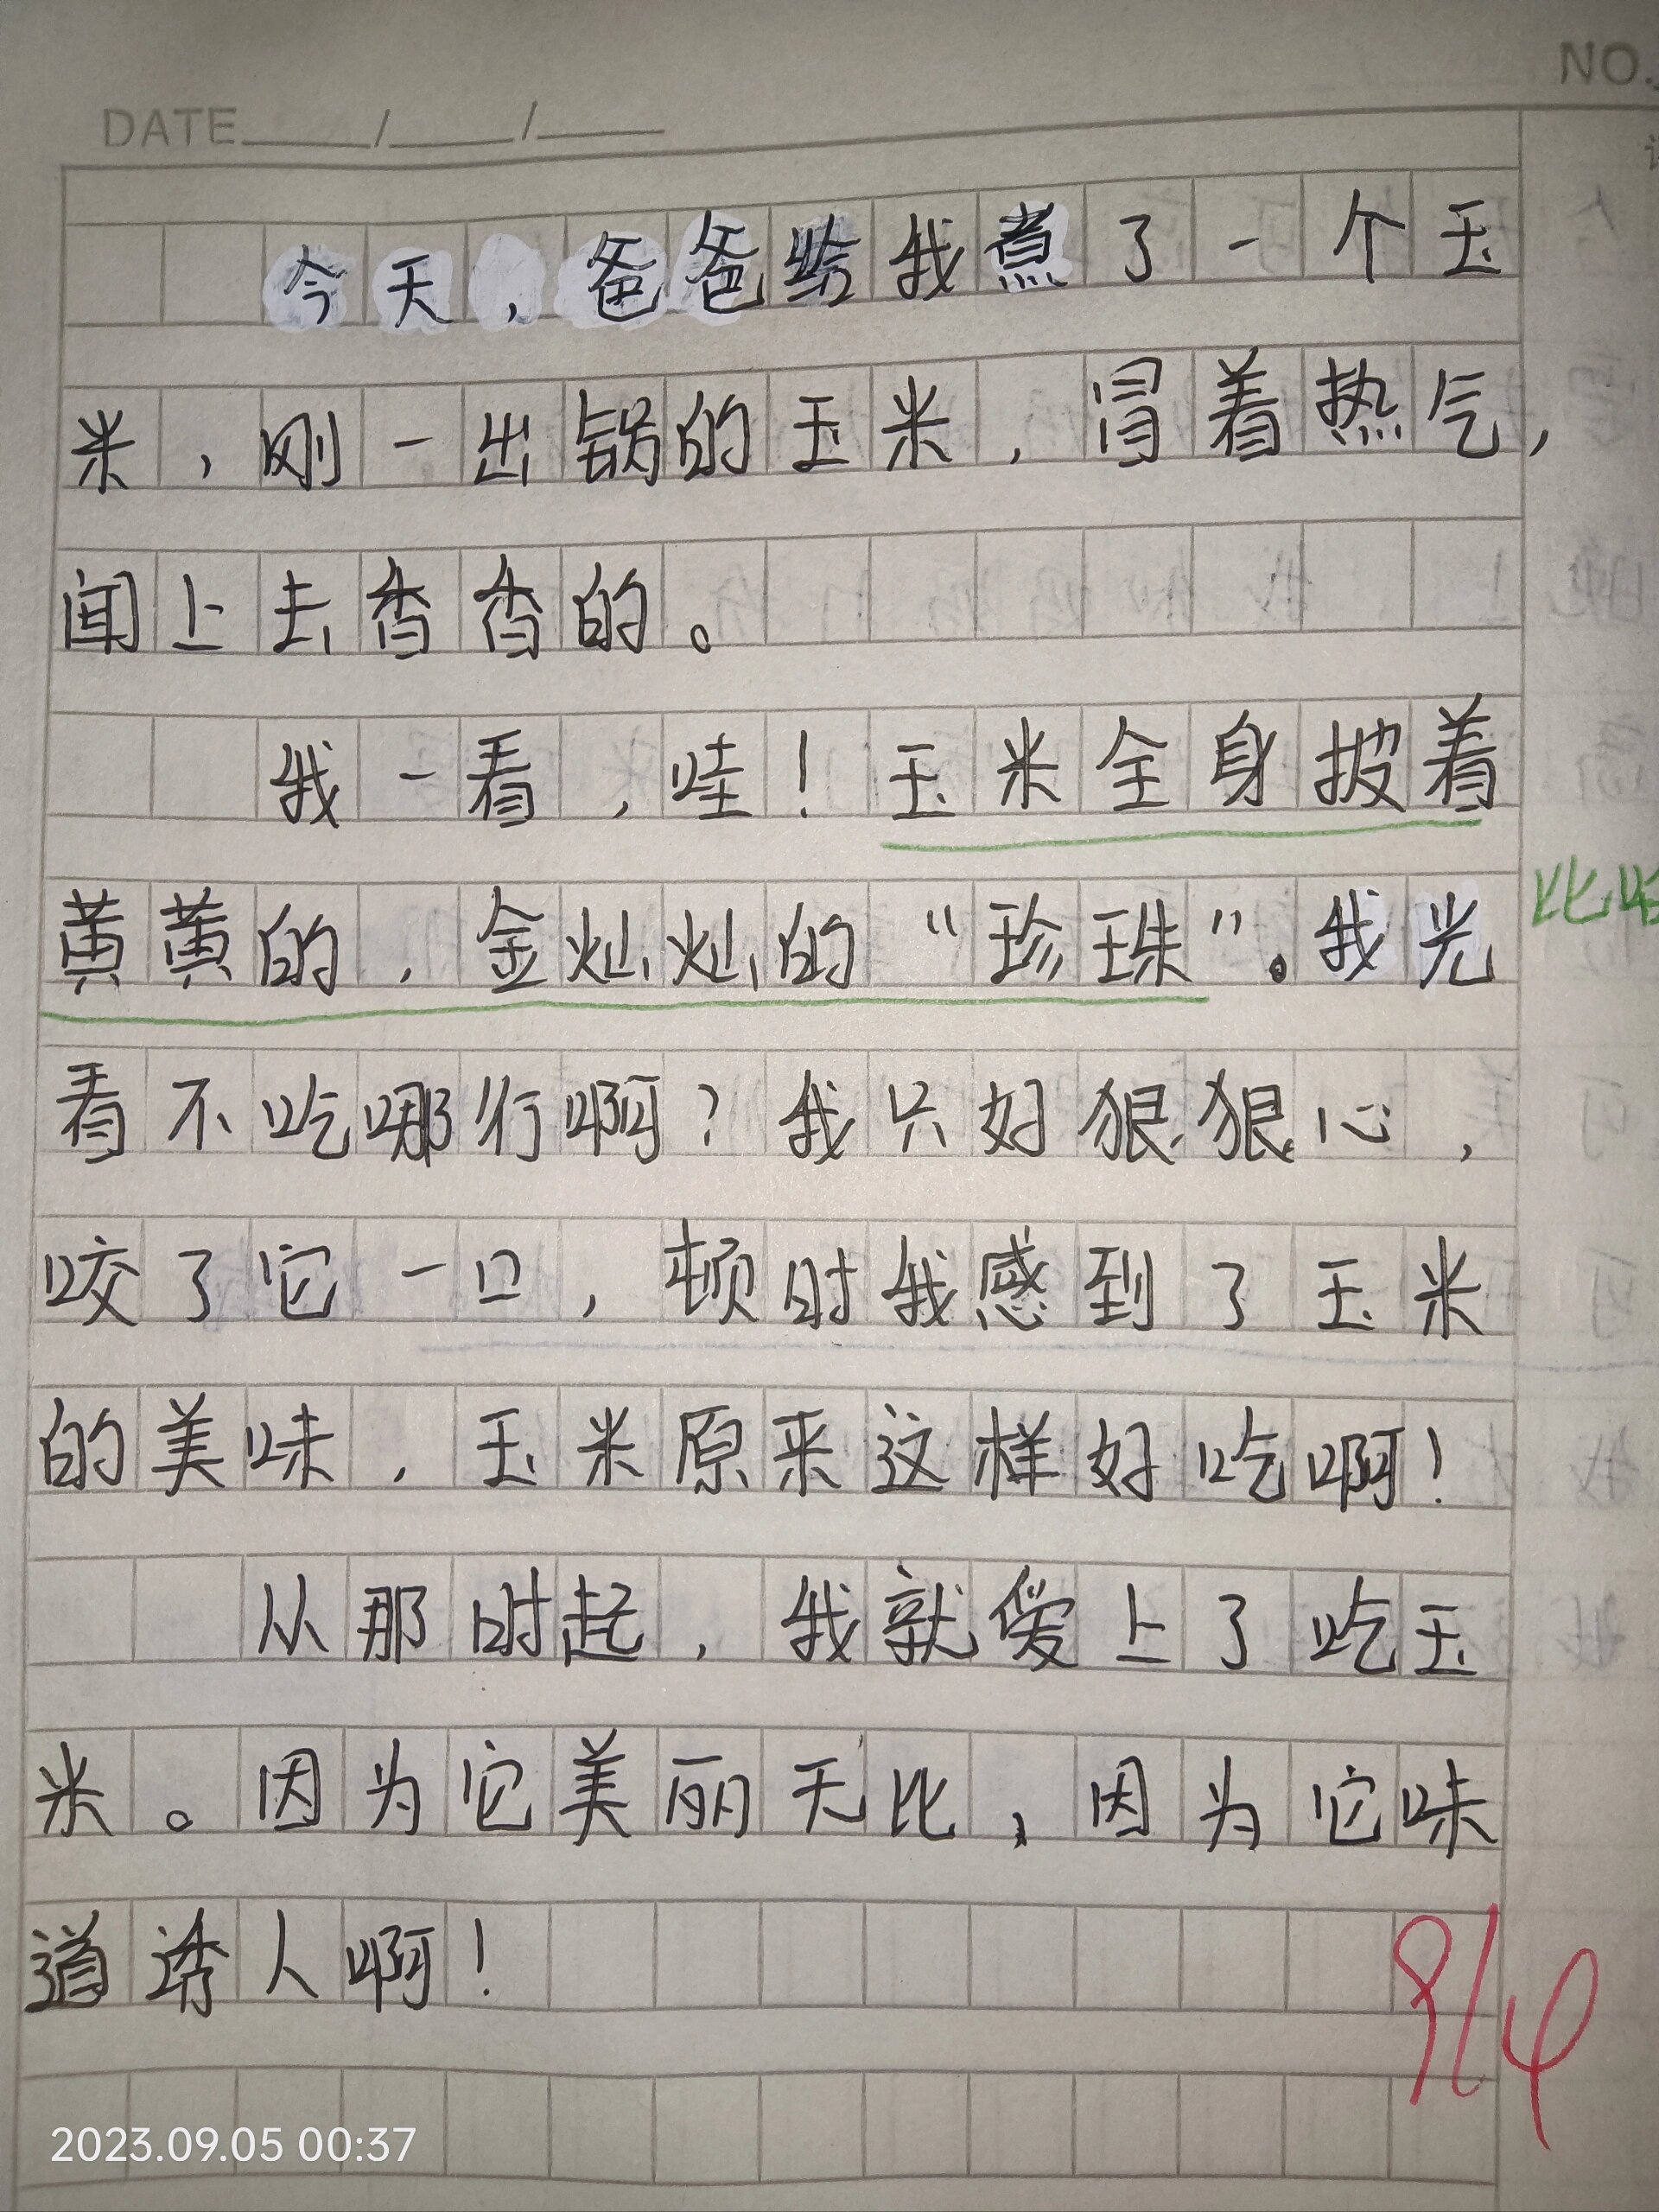 NO.
DATE____/____/____
今天，爸爸给我煮了一个玉
米，刚一出锅的玉米，冒着热气，
闻上去香香的。
我一看，哇！玉米全身披着
黄黄的，金灿灿的“珍珠”。我光
比喻
看不吃哪行啊？我只好狠狠心，
咬了它一口，顿时我感到了玉米
的美味，玉米原来这样好吃啊！
从那时起，我就爱上了吃玉
米。因为它美丽无比，因为它味
道诱人啊！
9/4
2023.09.05 00:37